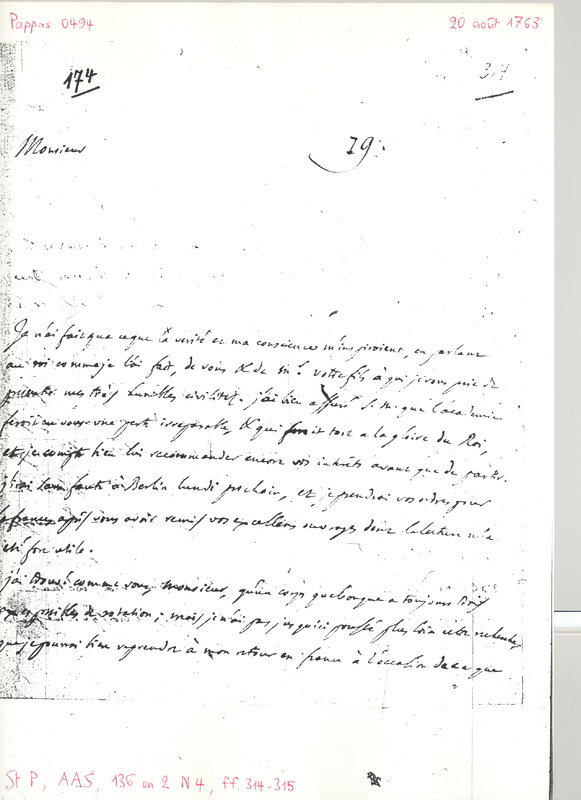 Pappas 0494
20 août 1763
174
317
Monsieur
79
Je n'ai fait que ce que la verité et ma conscience m'inspiroient, en parlant
au roi comme je l'ai fait, de vous & de Mr. votre fils à qui je vous prie de
presenter mes très humbles civilités. j'ai bien assuré S. M. que l'academie
feroit en vous une perte irreparable, & qui feroit tort a la gloire du Roi,
et je compte bien lui recommander encore vos interêts avant que de partir.
j'irai sans faute à Berlin lundi prochain, et je prendrai vos ordres pour
la france après vous avoir remis vos excellens ouvrages dont la lecture m'a
eté fort utile.
j'ai trouvé comme vous, Monsieur, qu'un corps quelconque a toujours trois
axes possibles de rotation; mais je n'ai pas jusqu'ici poussé plus loin cette recherche,
que je pourrai bien reprendre à mon retour en france à l'occasion de ce que
St P, AAS, 136 on 2 N 4, ff. 314-315